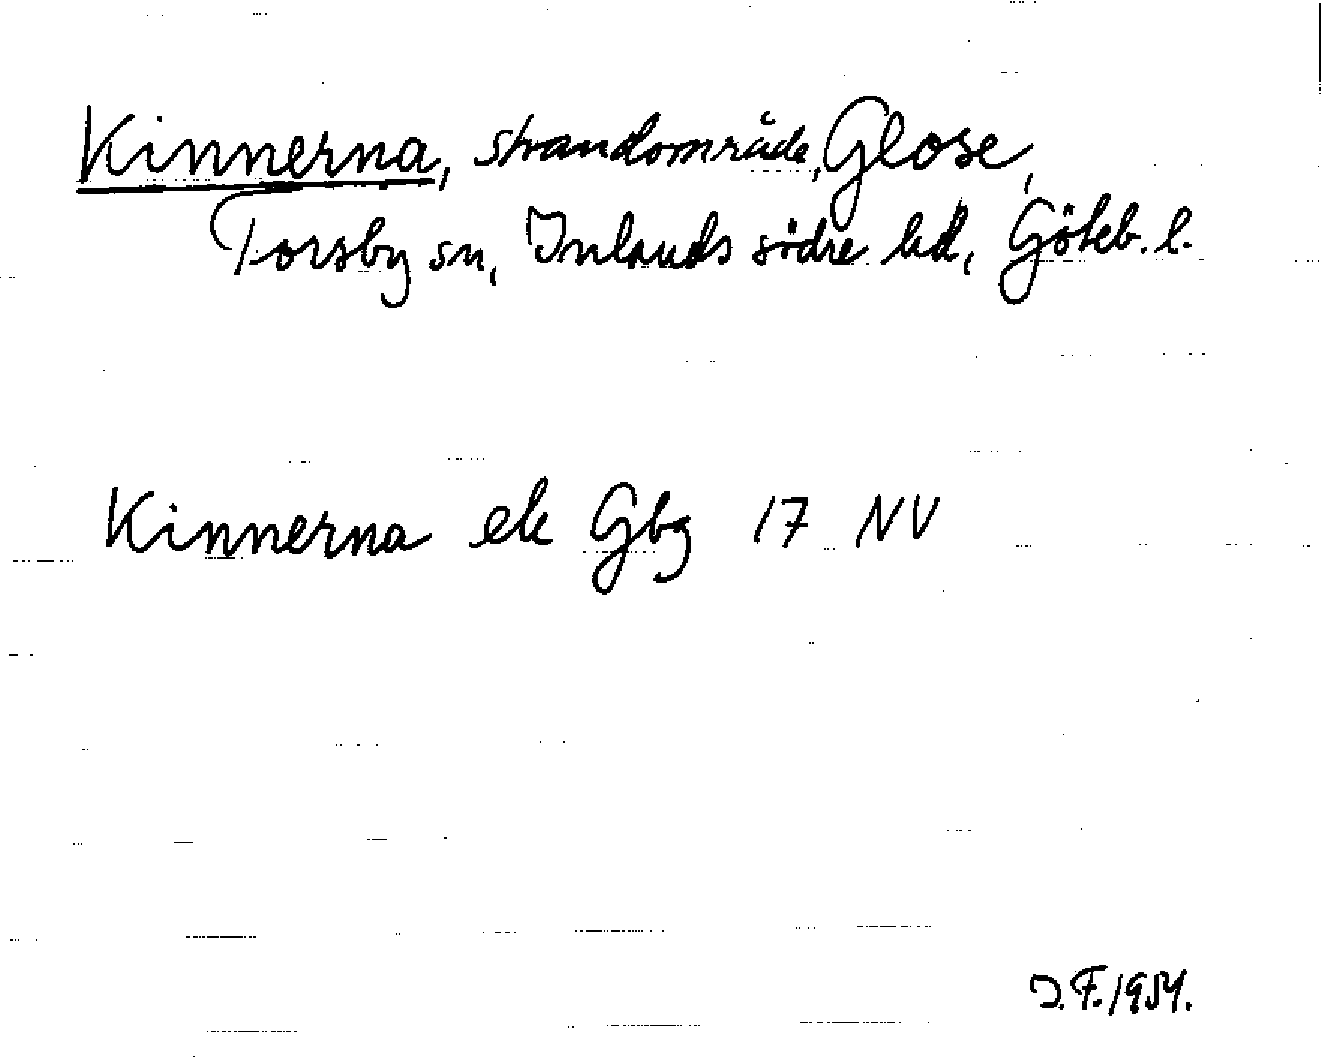 Kinnerna, strandområde, Glose,
Torsby sn, Inlands södre hd, Göteb. l.
Kinnerna ek Gbg 17 NV
I. F. 1954.